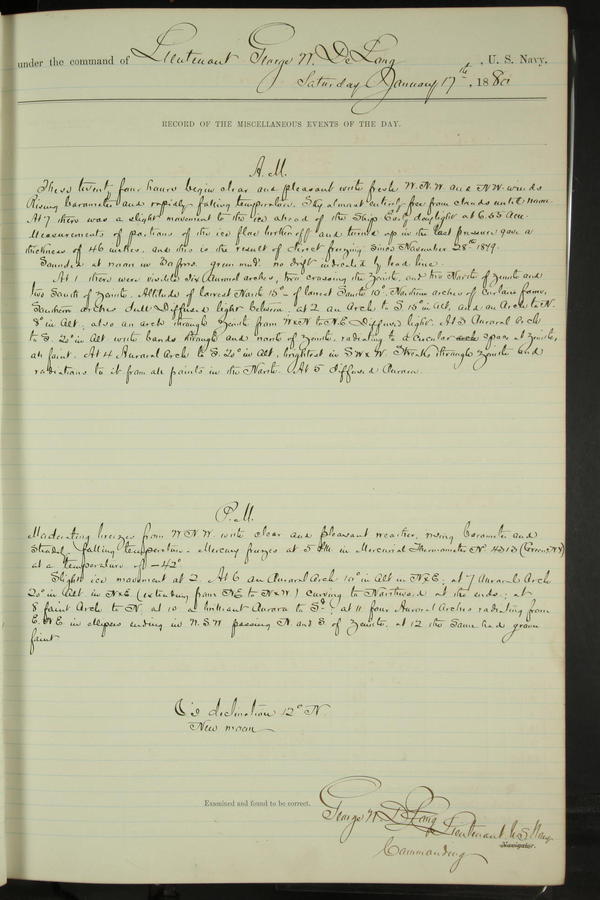 under the command of Lieutenant George W. De Long, U. S. Navy.
Saturday January 17th, 1880
RECORD OF THE MISCELLANEOUS EVENTS OF THE DAY.
A.M.
These twenty four hours begin clear and pleasant with fresh W.N.W. and N.W. winds
Rising barometer and rapidly falling temperature. Sky almost entirely free from clouds until noon
At 7 there was a slight movement to the ice ahead of the Ship Early daylight at 6.55 am
Measurements of portions of the ice floe broken off and turned up in the last pressure gave a
thickness of 46 inches, and this is the result of direct freezing since November 28th 1879.
Sounded at noon in fms. green mud: no drift indicated by lead line.
At 1 there were visible six Auroral arches, two crossing the Zenith, and two North of zenith and
two South of zenith. Altitude of lowest North 15° - of lowest South 10°. Northern arches of curtain forms,
Southern arches dull Diffused light between. at 2 an Arch to S 15° in alt, and an Arch to N.
8° in alt, also an arch through Zenith from to N.E Diffused light. At 3 Auroral Arch
to S. 20° in alt with bands through and north of Zenith, radiating to a circular space at Zenith,
all faint. At 4 Auroral Arch to S. 20° in alt, brightest in Streaks through zenith and
radiations to it from all points in the North. At 5 diffused Aurora.
P.M.
Moderating breezes from W.N.W. with clear and pleasant weather, rising barometer and
steadily falling temperature. Mercury freezes at 5 P.M. in Mercurial Thermometer No. 4313 (Green N.Y.)
at a temperature of -42°
Slight ice movement at 2. At 6 an Auroral Arch 10° in alt in NxE; at 7 Auroral Arch
20° in alt in NxE (extending from NE to NxW) curving to Northward at the ends; at
8 faint Arch to N. at 10 a brilliant Aurora to Sd; at 11 four Auroral Arches radiating from
E.N.E in ellipses ending in W.S.W passing N. and S of Zenith, at 12 the same had grown
faint
declination 12° N.
New moon
Examined and found to be correct.
George W. De Long Lieutenant U.S. Navy
Navigator.
Commanding